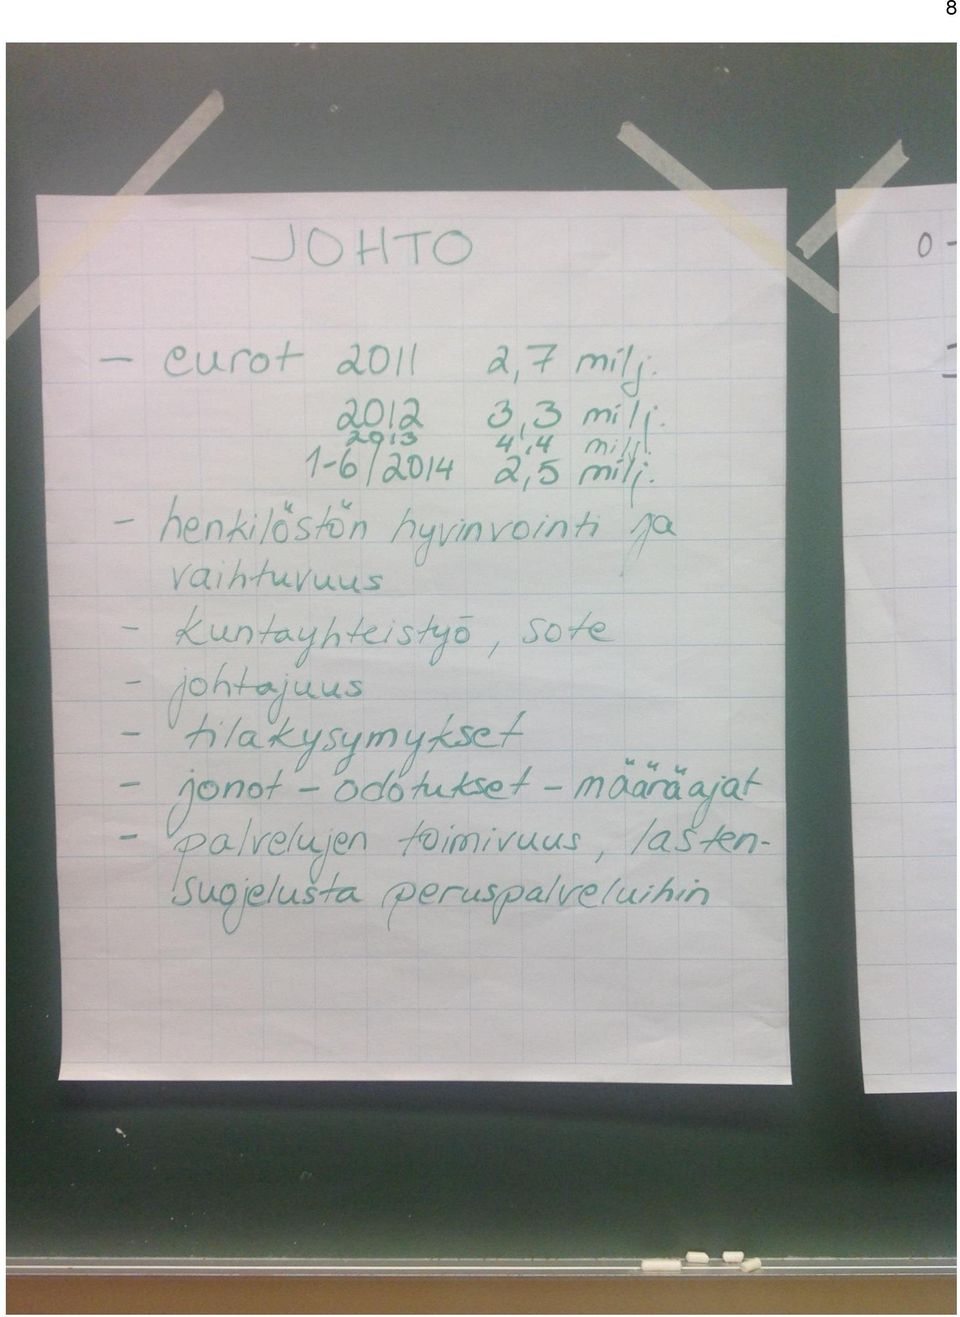 8
JOHTO
- eurot 2011 2,7 milj.
2012 3,3 milj.
2013 4,4 milj.
1-6/2014 2,5 milj.
- henkilöstön hyvinvointi ja
vaihtuvuus
- kuntayhteistyö, sote
- johtajuus
- tilakysymykset
- jonot - odotukset - määräajat
- palvelujen toimivuus, lasten-
suojelusta peruspalveluihin
0-